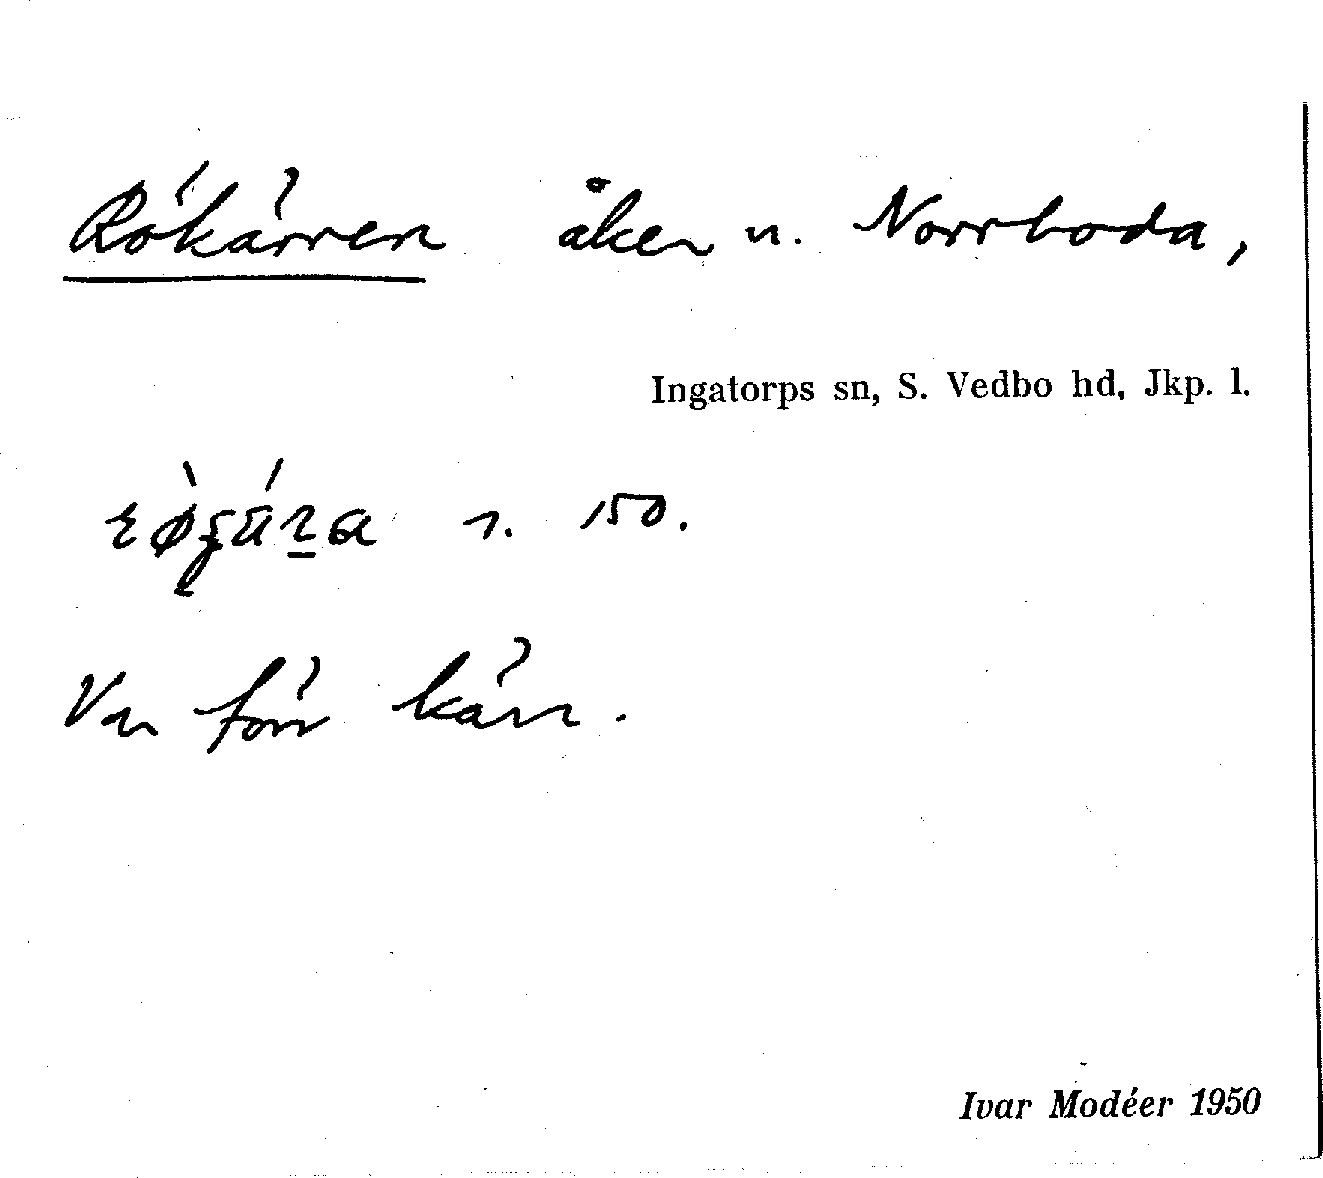 Rökärren åker n. Norrboda,
Ingatorps sn, S. Vedbo hd, Jkp. l.
r. 150.
Var förr kärr.
Ivar Modéer 1950